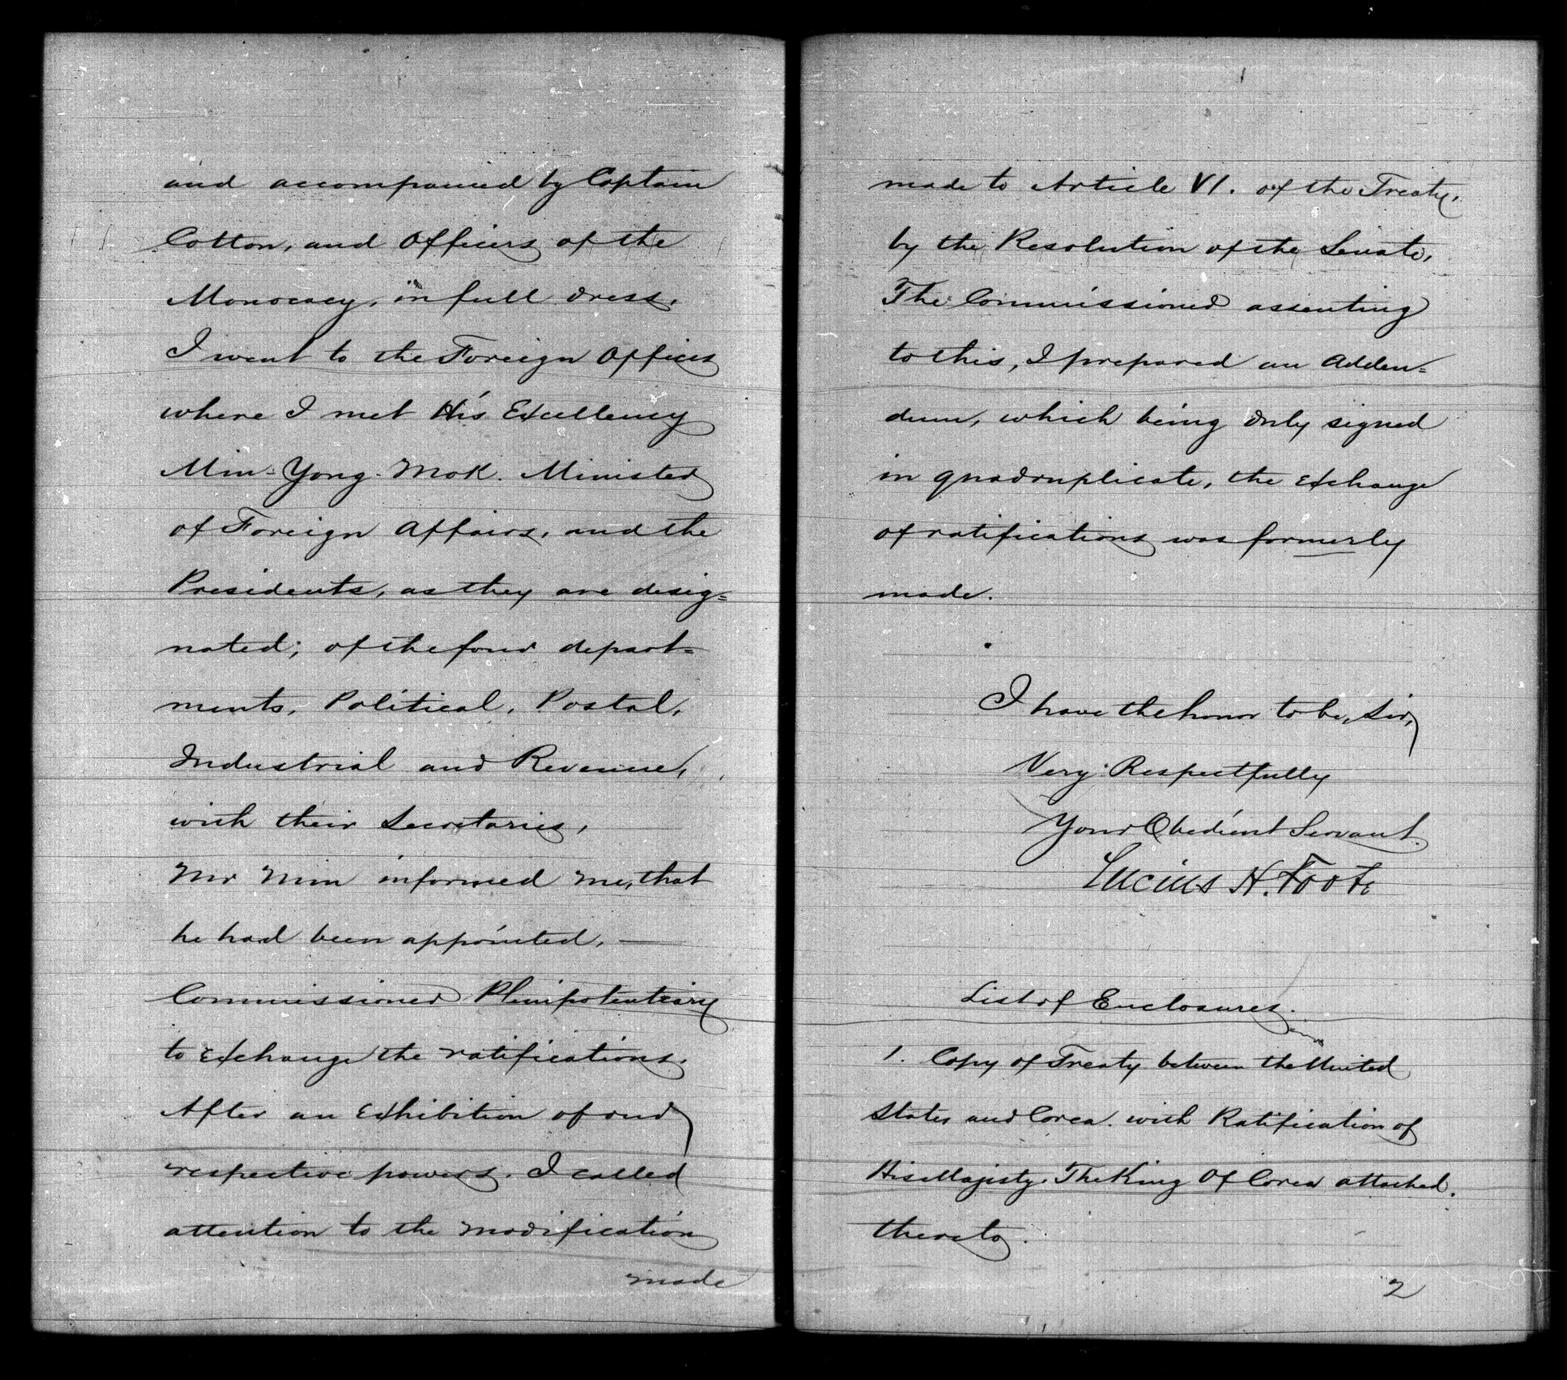 and accompanied by Captain
Cotton, and Officers of the
Monocacy, in full dress,
I went to the Foreign Offices
where I met His Excellency
Min-Yong-Mok. Minister
of Foreign Affairs, and the
Presidents, as they are desig=
nated; of the four depart=
ments, Political, Postal,
Industrial and Revenue,
with their Secretaries,
Mr Min informed me, that
he had been appointed, —
Commissioner Plenipotentiary
to exchange the ratifications.
After an exhibition of our
respective powers. I called
attention to the modification
made
made to Article VI. of the Treaty,
by the Resolution of the Senate,
The Commissioner assenting
to this, I prepared an Adden=
dum, which being duly signed
in quadruplicate, the exchange
of ratifications was formerly
made.
I have the honor to be, Sir,
Very Respectfully
Your Obedient Servant.
Lucius H. Foote
List of Enclosures.
1. Copy of Treaty between the United
States and Corea. with Ratification of
His Majesty. The King Of Corea attached.
thereto.
2